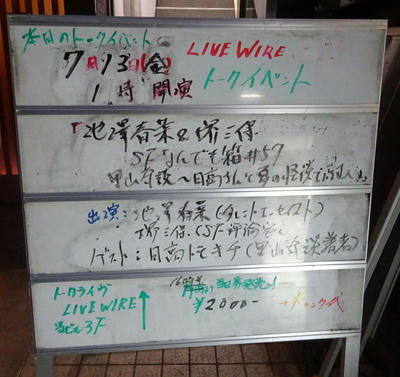 本日のトークイベント
LIVE WIRE
7月13日(金)
トークイベント
1時開演
「池澤春菜&堺三保
SFなんでも箱#59
里山奇談〜日高さんと夏の怪談で涼
出演:池澤春菜(タレント・エッセイスト)
堺三保(SF評論家)
ゲスト:日高トモキチ(里山奇談著者)
トークライヴ
LIVE WIRE
当ビル3F
当日券発売!
¥2000-
+ドリンク代